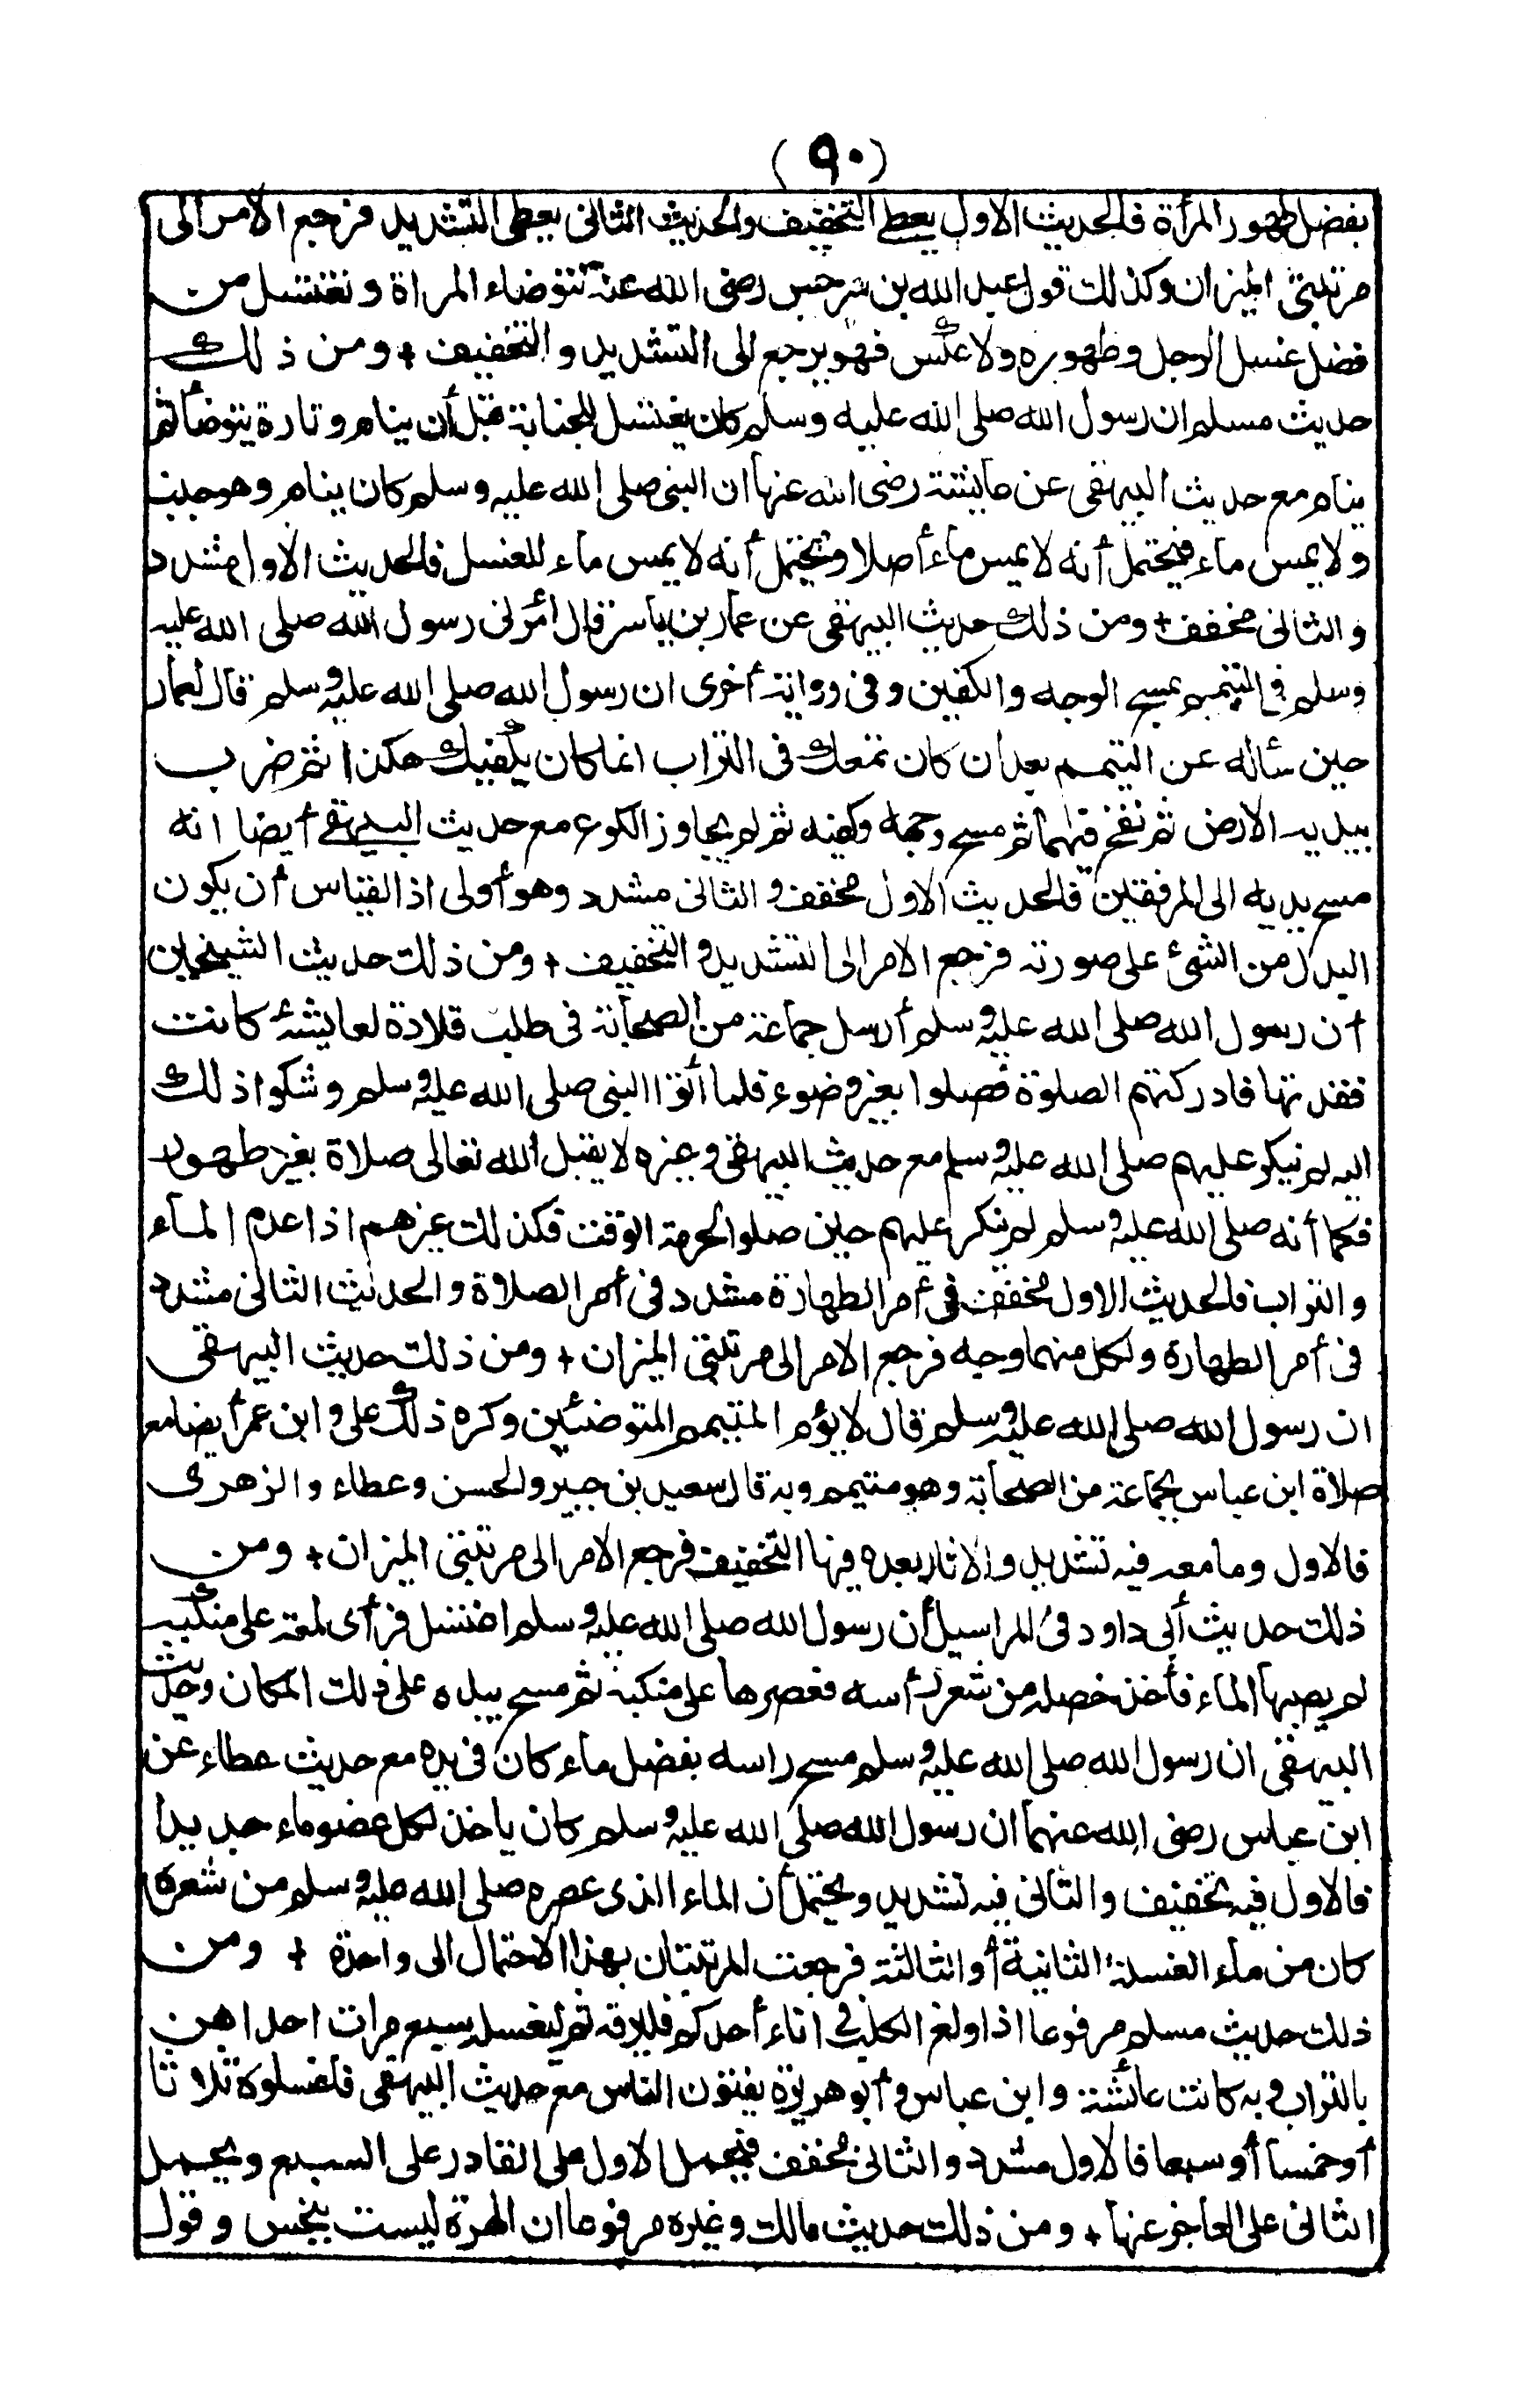 (٩٠)
بفضل طهور المرأة فالحديث الاول يعطى التخفيف والحديث الثانى يعطى التشديد فرجع الامر الى
مرتبتى الميزان وكذلك قول عبد الله بن سرجس رضى الله عنه تتوضاء المراة و تغتسل من
فضل غسل الرجل وطهوره ولا عكس فهو يرجع الى التشديد و التخفيف + ومن ذلك
حديث مسلم ان رسول الله صلى الله عليه وسلم كان يغتسل للجنابة قبل أن ينام وتارة يتوضأ ثم
ينام مع حديث البيهقى عن عايشة رضى الله عنها ان النبى صلى الله عليه وسلم كان ينام وهو جنب
ولا يمس ماء فيحتمل أنه لا يمس ماء أصلا ويحتمل أنه لا يمس ماء للغسل فالحديث الأول مشدد
والثانى مخفف + ومن ذلك حديث البيهقى عن عمار بن ياسر قال أمرنى رسول الله صلى الله عليه
وسلم فى التيمم بمسح الوجه والكفين وفى رواية أخرى ان رسول الله صلى الله عليه وسلم قال لعمار
حين سأله عن التيمم بعد ان كان تمعك فى التراب انما كان يكفيك هكذا ثم ضرب
بيديه الارض ثم نفخ فيهما ثم مسح وجهه وكفيه ثم لم يجاوز الكوع مع حديث البيهقى أيضا انه
مسح يديه الى المرفقين فالحديث الاول مخفف والثانى مشدد وهو أولى اذ القياس أن يكون
البدل من الشئ على صورته فرجع الامر الى التشديد والتخفيف + ومن ذلك حديث الشيخين
أن رسول الله صلى الله عليه وسلم أرسل جماعة من الصحابة فى طلب قلادة لعايشة كانت
فقدتها فادركتهم الصلوة فصلوا بغير وضوء فلما أتوا النبى صلى الله عليه وسلم وشكوا ذلك
اليه لم ينكر عليهم صلى الله عليه وسلم مع حديث البيهقى وغيره لا يقبل الله تعالى صلاة بغير طهور
فكما أنه صلى الله عليه وسلم لم ينكر عليهم حين صلوا لحرمة الوقت فكذلك غيرهم اذا عدم الماء
والتراب فالحديث الاول مخفف فى أمر الطهارة مشدد فى أمر الصلاة والحديث الثانى مشدد
فى أمر الطهارة ولكل منهما وجه فرجع الامر الى مرتبتى الميزان + ومن ذلك حديث البيهقى
ان رسول الله صلى الله عليه وسلم قال لا يؤم المتيمم المتوضئين وكره ذلك على وابن عمر أيضا مع
صلاة ابن عباس بجماعة من الصحابة وهو متيمم وبه قال سعيد بن جبير والحسن وعطاء والزهرى
فالاول وما معه فيه تشديد والاثار بعده فيها التخفيف فرجع الامر الى مرتبتى الميزان + ومن
ذلك حديث أبى داود فى المراسيل أن رسول الله صلى الله عليه وسلم اغتسل فرأى لمعة على منكبيه
لم يصبها الماء فأخذ خصلة من شعر رأسه فعصرها على منكبه ثم مسح بيده على ذلك المكان وحديث
البيهقى ان رسول الله صلى الله عليه وسلم مسح راسه بفضل ماء كان فى يده مع حديث عطاء عن
ابن عباس رضى الله عنهما ان رسول الله صلى الله عليه وسلم كان ياخذ لكل عضو ماء جديدا
فالاول فيه تخفيف والثانى فيه تشديد ويحتمل أن الماء الذى عصره صلى الله عليه وسلم من شعره
كان من ماء الغسلة الثانية أو الثالثة فرجعت المرتبتان بهذا الاحتمال الى واحدة + ومن
ذلك حديث مسلم مرفوعا اذا ولغ الكلب فى اناء أحدكم فليرقه ثم ليغسله سبع مرات احداهن
بالتراب وبه كانت عائشة وابن عباس وأبو هريرة يفتون الناس مع حديث البيهقى فاغسلوه ثلاثا
أو خمسا أو سبعا فالاول مشدد والثانى مخفف فيحمل الاول على القادر على السبع ويحمل
الثانى على العاجز عنها + ومن ذلك حديث مالك وغيره مرفوعا ان الهرة ليست بنجس وقول